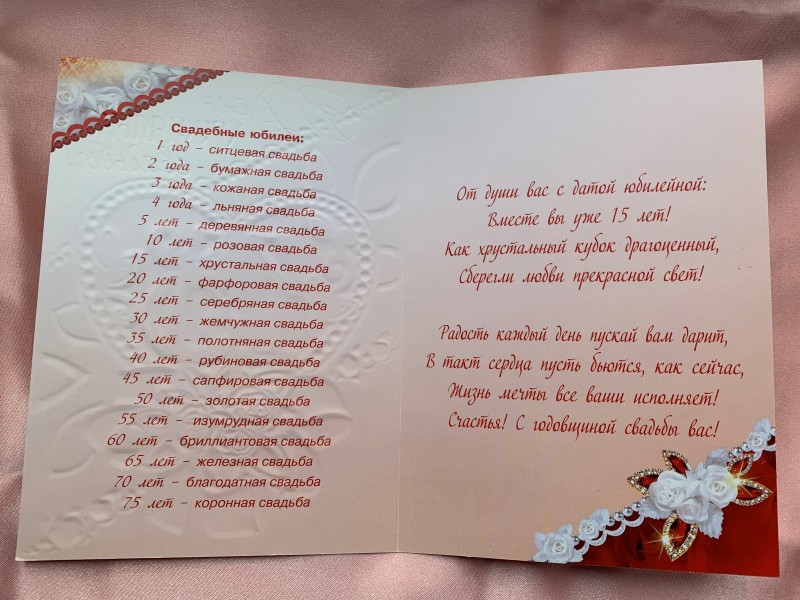 Свадебные юбилеи:
1 год - ситцевая свадьба
2 года - бумажная свадьба
3 года - кожаная свадьба
4 года - льняная свадьба
5 лет - деревянная свадьба
10 лет - розовая свадьба
15 лет - хрустальная свадьба
20 лет - фарфоровая свадьба
25 лет - серебряная свадьба
30 лет - жемчужная свадьба
35 лет - полотняная свадьба
40 лет - рубиновая свадьба
45 лет - сапфировая свадьба
50 лет - золотая свадьба
55 лет - изумрудная свадьба
60 лет - бриллиантовая свадьба
65 лет - железная свадьба
70 лет - благодатная свадьба
75 лет - коронная свадьба
От души вас с датой юбилейной:
Вместе вы уже 15 лет!
Как хрустальный кубок драгоценный,
Сберегли любви прекрасной свет!
Радость каждый день пускай вам дарит,
В такт сердца пусть бьются, как сейчас,
Жизнь мечты все ваши исполняет!
Счастья! С годовщиной свадьбы вас!